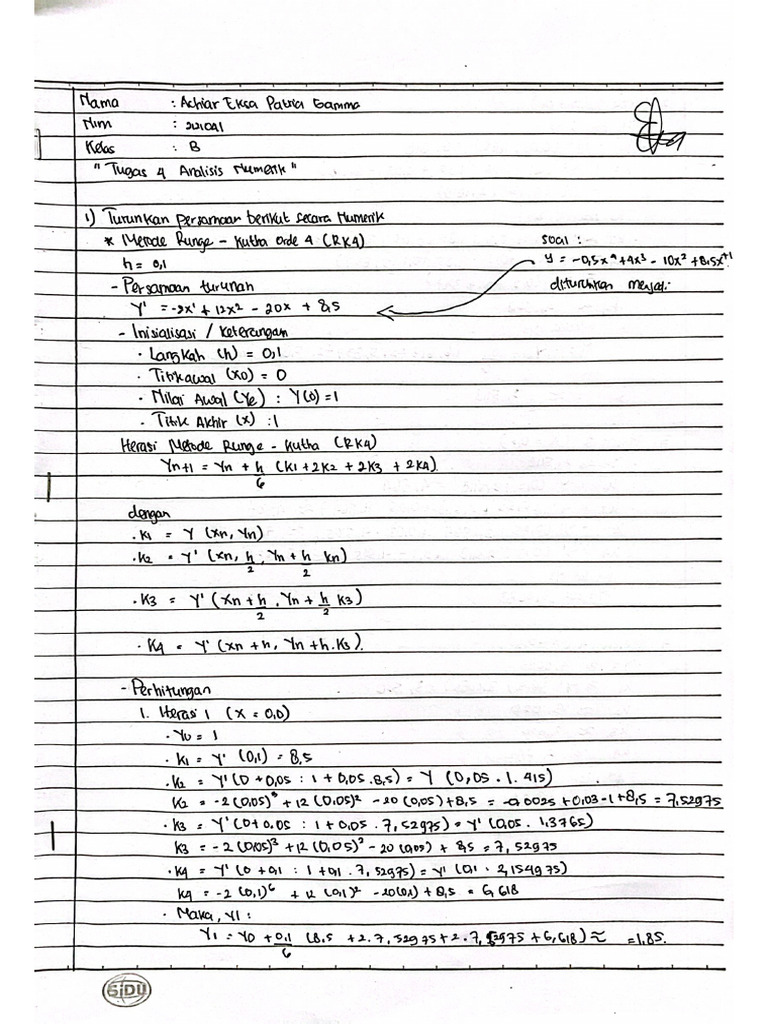 Nama : Achiar Eksa Patria Gamma
Nim :
Kelas : B
"Tugas 4 Analisis Numerik"
1) Turunkan persamaan berikut secara Numerik
* Metode Runge - Kutha Orde 4 (RK4)
soal :
h = 0,1
y = -0,5x⁴ + 4x³ - 10x² + 8,5x + 1
- Persamaan turunan
diturunkan menjadi:
Y' = -2x³ + 12x² - 20x + 8,5
- Inisialisasi / keterangan
· Langkah (h) = 0,1
· Titik awal (x0) = 0
· Nilai Awal (Ye) : Y(0) = 1
· Titik Akhir (x) : 1
Iterasi Metode Runge - Kutha (RK4)
Yn+1 = Yn + h/6 (K1 + 2K2 + 2K3 + 2K4)
dengan
· K1 = Y (xn, Yn)
· K2 = Y' (xn, h/2, Yn + h/2 kn)
· K3 = Y' (Xn + h/2, Yn + h/2 K3)
· K4 = Y' (xn + h, Yn + h. K3).
- Perhitungan
1. Iterasi 1 (X = 0,0)
· Y0 = 1
· K1 = Y' (0,1) = 8,5
· K2 = Y' (0 + 0,05 : 1 + 0,05 . 8,5) = Y (0,05 . 1. 415)
K2 = -2 (0,05)³ + 12 (0,05)² - 20 (0,05) + 8,5 = -0,0025 + 0,03 - 1 + 8,5 = 7,52975
· K3 = Y' (0 + 0.05 : 1 + 0,05 . 7,52975) = Y' (0,05 . 1,3765)
K3 = -2 (0,05)³ + 12 (0,05)² - 20 (0,05) + 8,5 = 7,52975
· K4 = Y' (0 + 0,1 : 1 + 0,1 . 7,52975) = Y' (0,1 . 2,154975)
K4 = -2 (0,1)⁶ + 12 (0,1)² - 20(0,1) + 8,5 = 6,618
· Maka, Y1 :
Y1 = Y0 + 0,1/6 (8,5 + 2.7,52975 + 2.7,52975 + 6,618) ≈ = 1,85.
SiDU